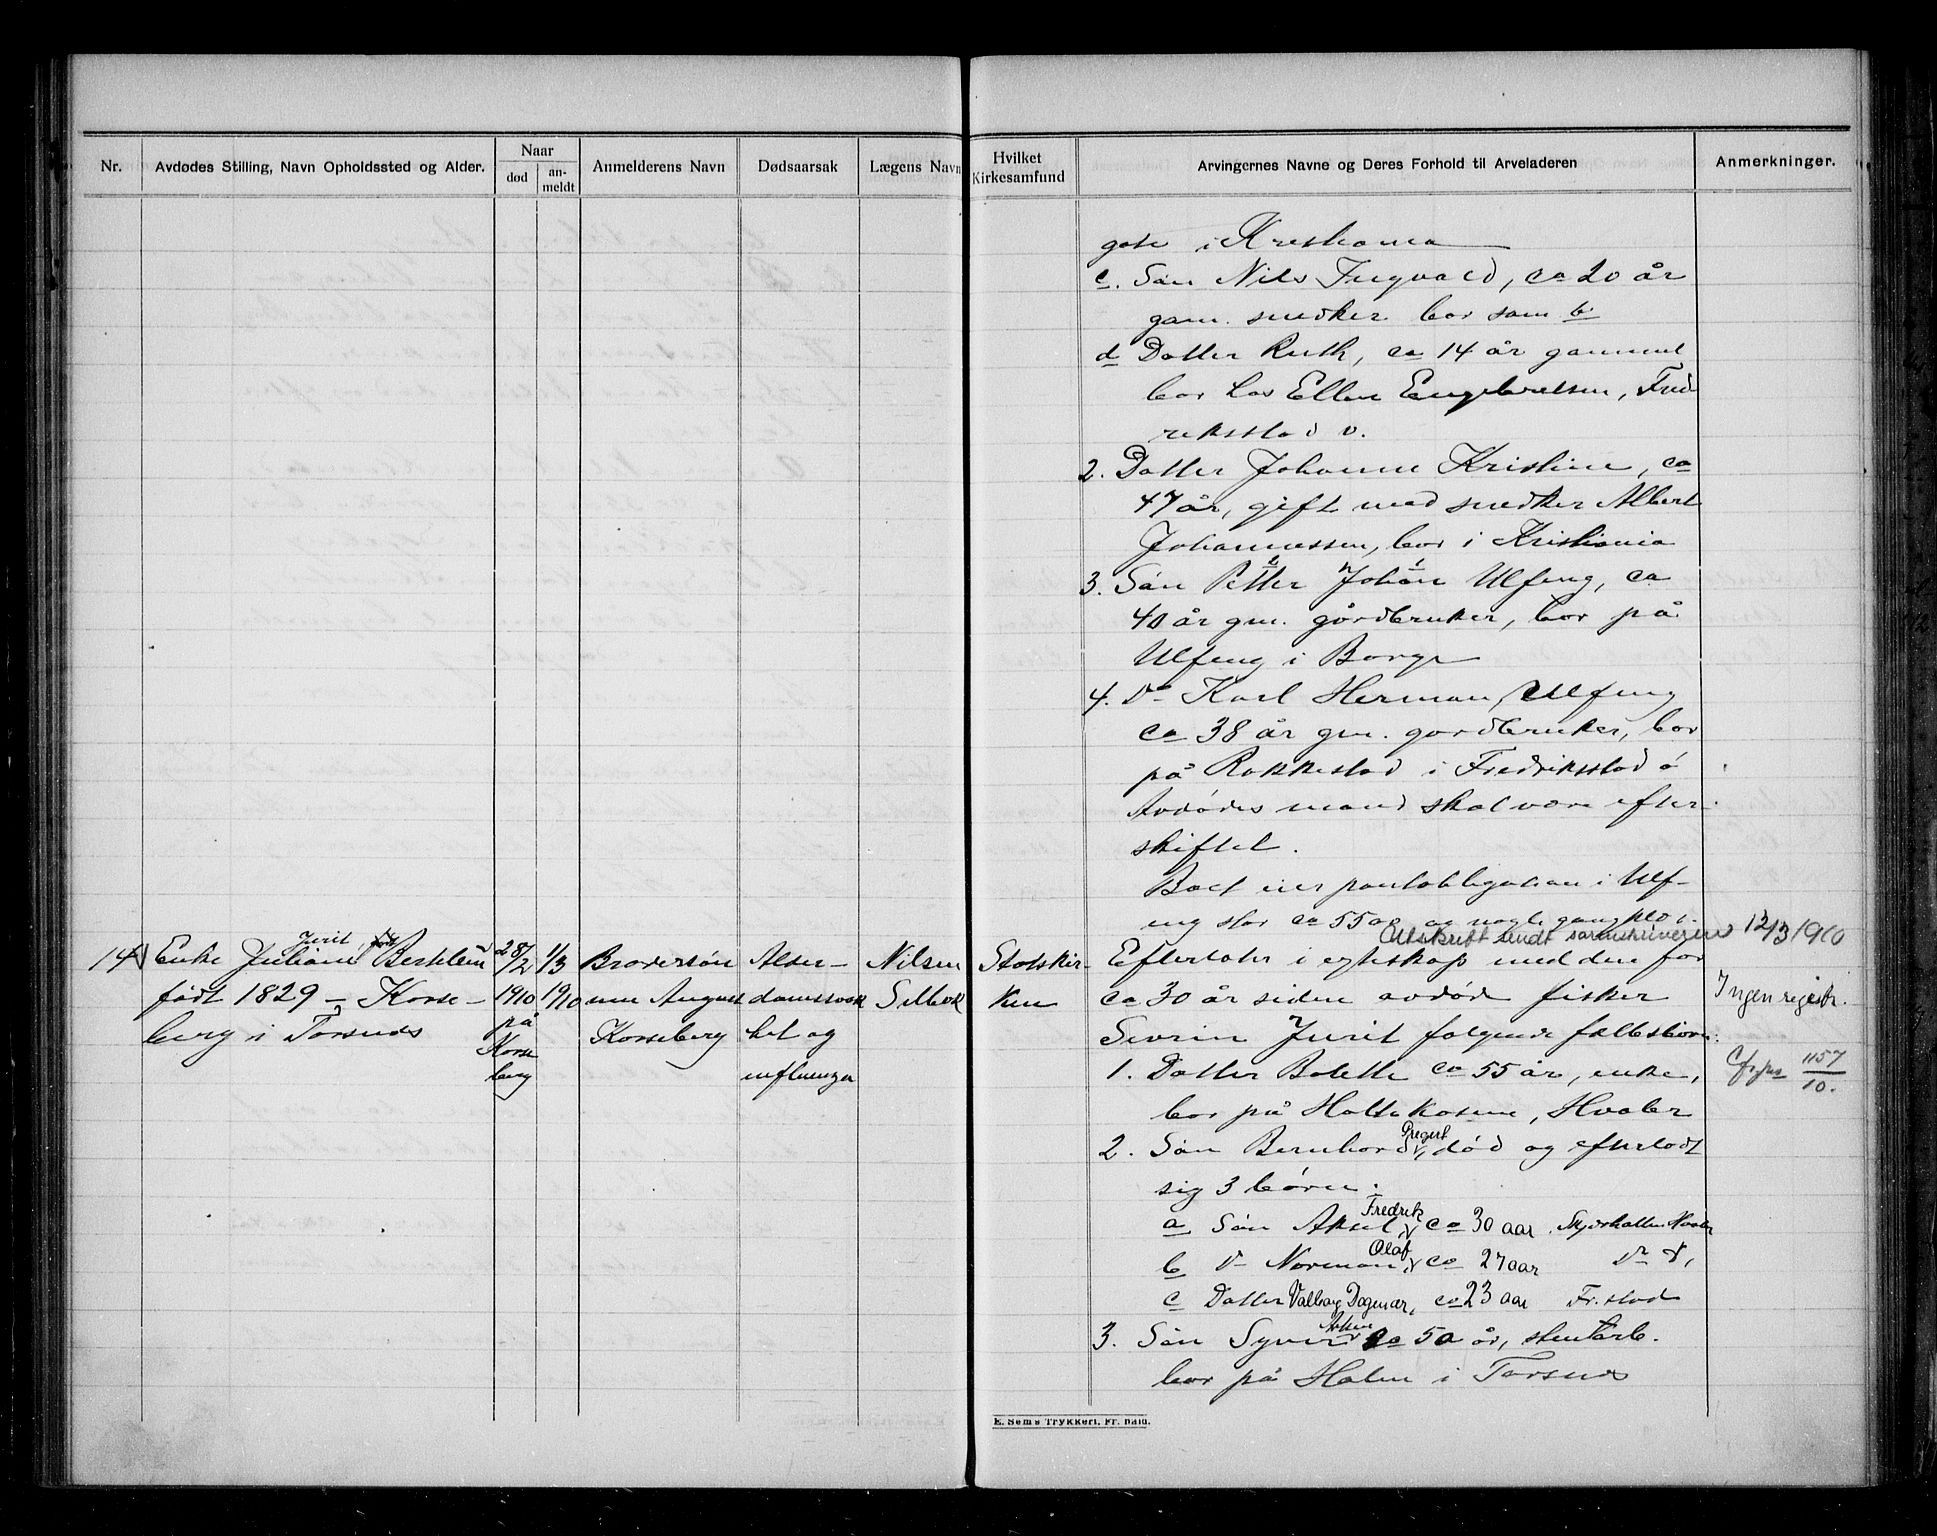 Nr.
Avdødes Stilling, Navn Opholdssted og Alder.
Naar
død
an-
meldt
Anmelderens Navn
Dødsaarsak
Lægens Navn
Hvilket
Kirkesamfund
Arvingernes Navne og Deres Forhold til Arveladeren
Anmerkninger.
gate i Kristiania
c. Søn Nils Ingvald, ca 20 år
gam. snedker bor som b
d Datter Ruth, ca 14 år gammel
bor hos Ellen Engebretsen, Fred
riksstad v.
2. Datter Johanne Kristine, ca
47 år, gift med snedker Albert
Johannessen, bor i Kristiania
3. Søn Petter Johan Ulfeng, ca
40 år gm. gårdbruker, bor på
Ulfeng i Borge
4. Do Karl Herman Ulfeng
ca 38 år gm. gardbruker, bor
på Rakkestad i Fredriksstad ø
Avdødes mand skal være efter-
skiftet.
Boet eier pantobligation i Ulf-
eng stor ca 5500 og nogle
Utskrift sendt sorenskriveren 12/3 1910
14
Enke Juliane Jurit født Berthlein
født 1829 - Korse-
berg i Torsnes
28/2
1910
på
Korse
berg
1/3
1910
Brodersøn
nen August
Korseberg
Alder-
domssvak
het og
influenza
Nilsen
Selbak
Statskir-
ken
Efterlater i egteskap med den for
ca 30 år siden avdøde fisker
Sevrin Jurit følgende fællesbørn:
Ingen registr.
1157
10.
1. Datter Bolette ca 55 år, enke,
bor på Holtekosene, Hvaler
2. Søn Bernhard Pregert, død og efterladt
sig 3 børn:
a Søn Aksel Fredrik ca 30 aar Skjærhallen Hvaler
b Do Norman Olaf ca 27 aar Do
c Datter Valborg Dagmar, ca 23 aar Fr.stad
3. Søn Syver ca 50 år, stenarb.
bor på Holm i Torsnes
E. Sems Trykkeri, Fr. hald.